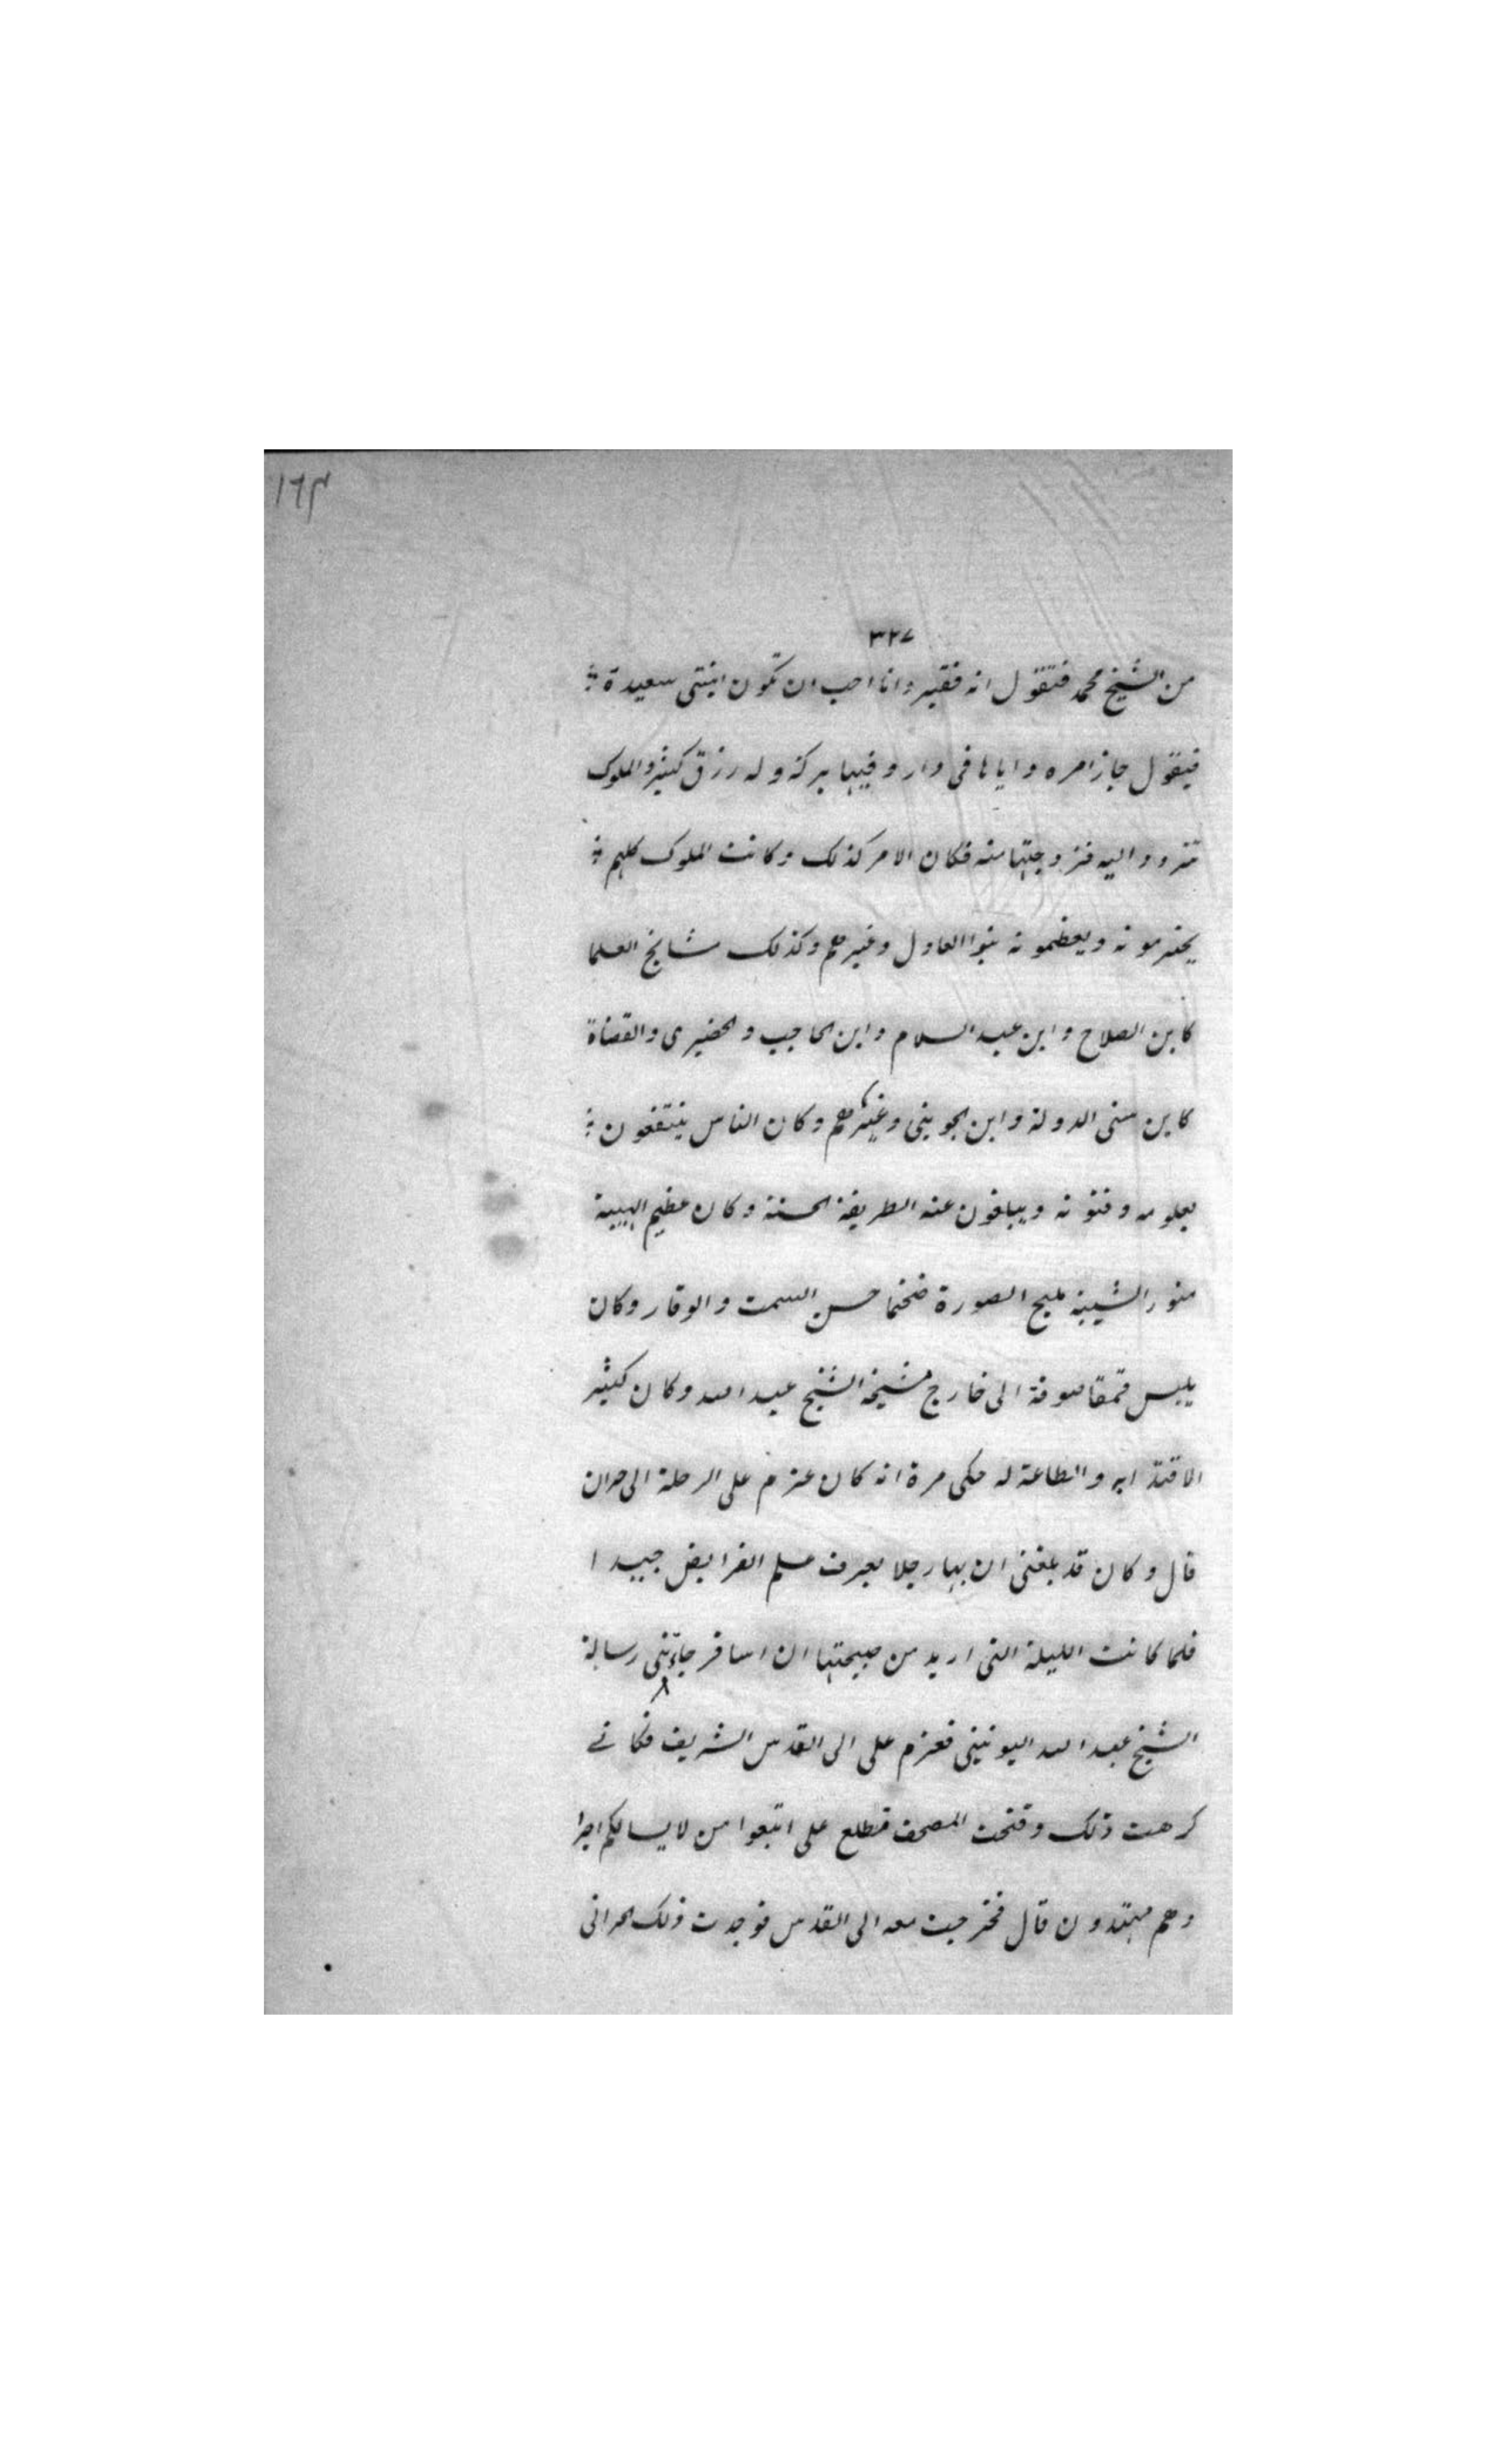 ١٦٣
٣٢٧
من الشيخ محمد فتقول انه فقير وانا احب ان تكون ابنتى سعيدة
فيقول جاز امره واياها فى دار وفيها بركة وله رزق كثير والملوك
تتردد اليه فزوجتها منه فكان الامر كذلك وكانت الملوك كلهم
يحترمونه ويعظمونه بنوا العادل وغيرهم وكذلك مشايخ العلما
كابن الصلاح وابن عبد السلام وابن الحاجب والحضيرى والقضاة
كابن سنى الدولة وابن الجوينى وغيرهم وكان الناس ينتفعون
بعلومه وفنونه ويبلغون عنه الطريقة الحسنة وكان عظيم الهيبة
منور الشيبة مليح الصورة ضخما حسن السمت والوقار وكان
يلبس قمقا صوفة الى خارج مشيخة الشيخ عبد الله وكان كثير
الاقتدا به والطاعة له حكى مرة انه كان عزم على الرحلة الى حران
قال وكان قد بلغنى ان بها رجلا يعرف علم الفرايض جيدا
فلما كانت الليلة التى اريد من صبيحتها ان اسافر جاءتنى رسالة
الشيخ عبد الله اليونينى فعزم على الى القدس الشريف فكانى
كرهت ذلك وفتحت المصحف فطلع على اتبعوا من لا يسالكم اجرا
وهم مهتدون قال فخرجت معه الى القدس فوجدت ذلك الحرانى